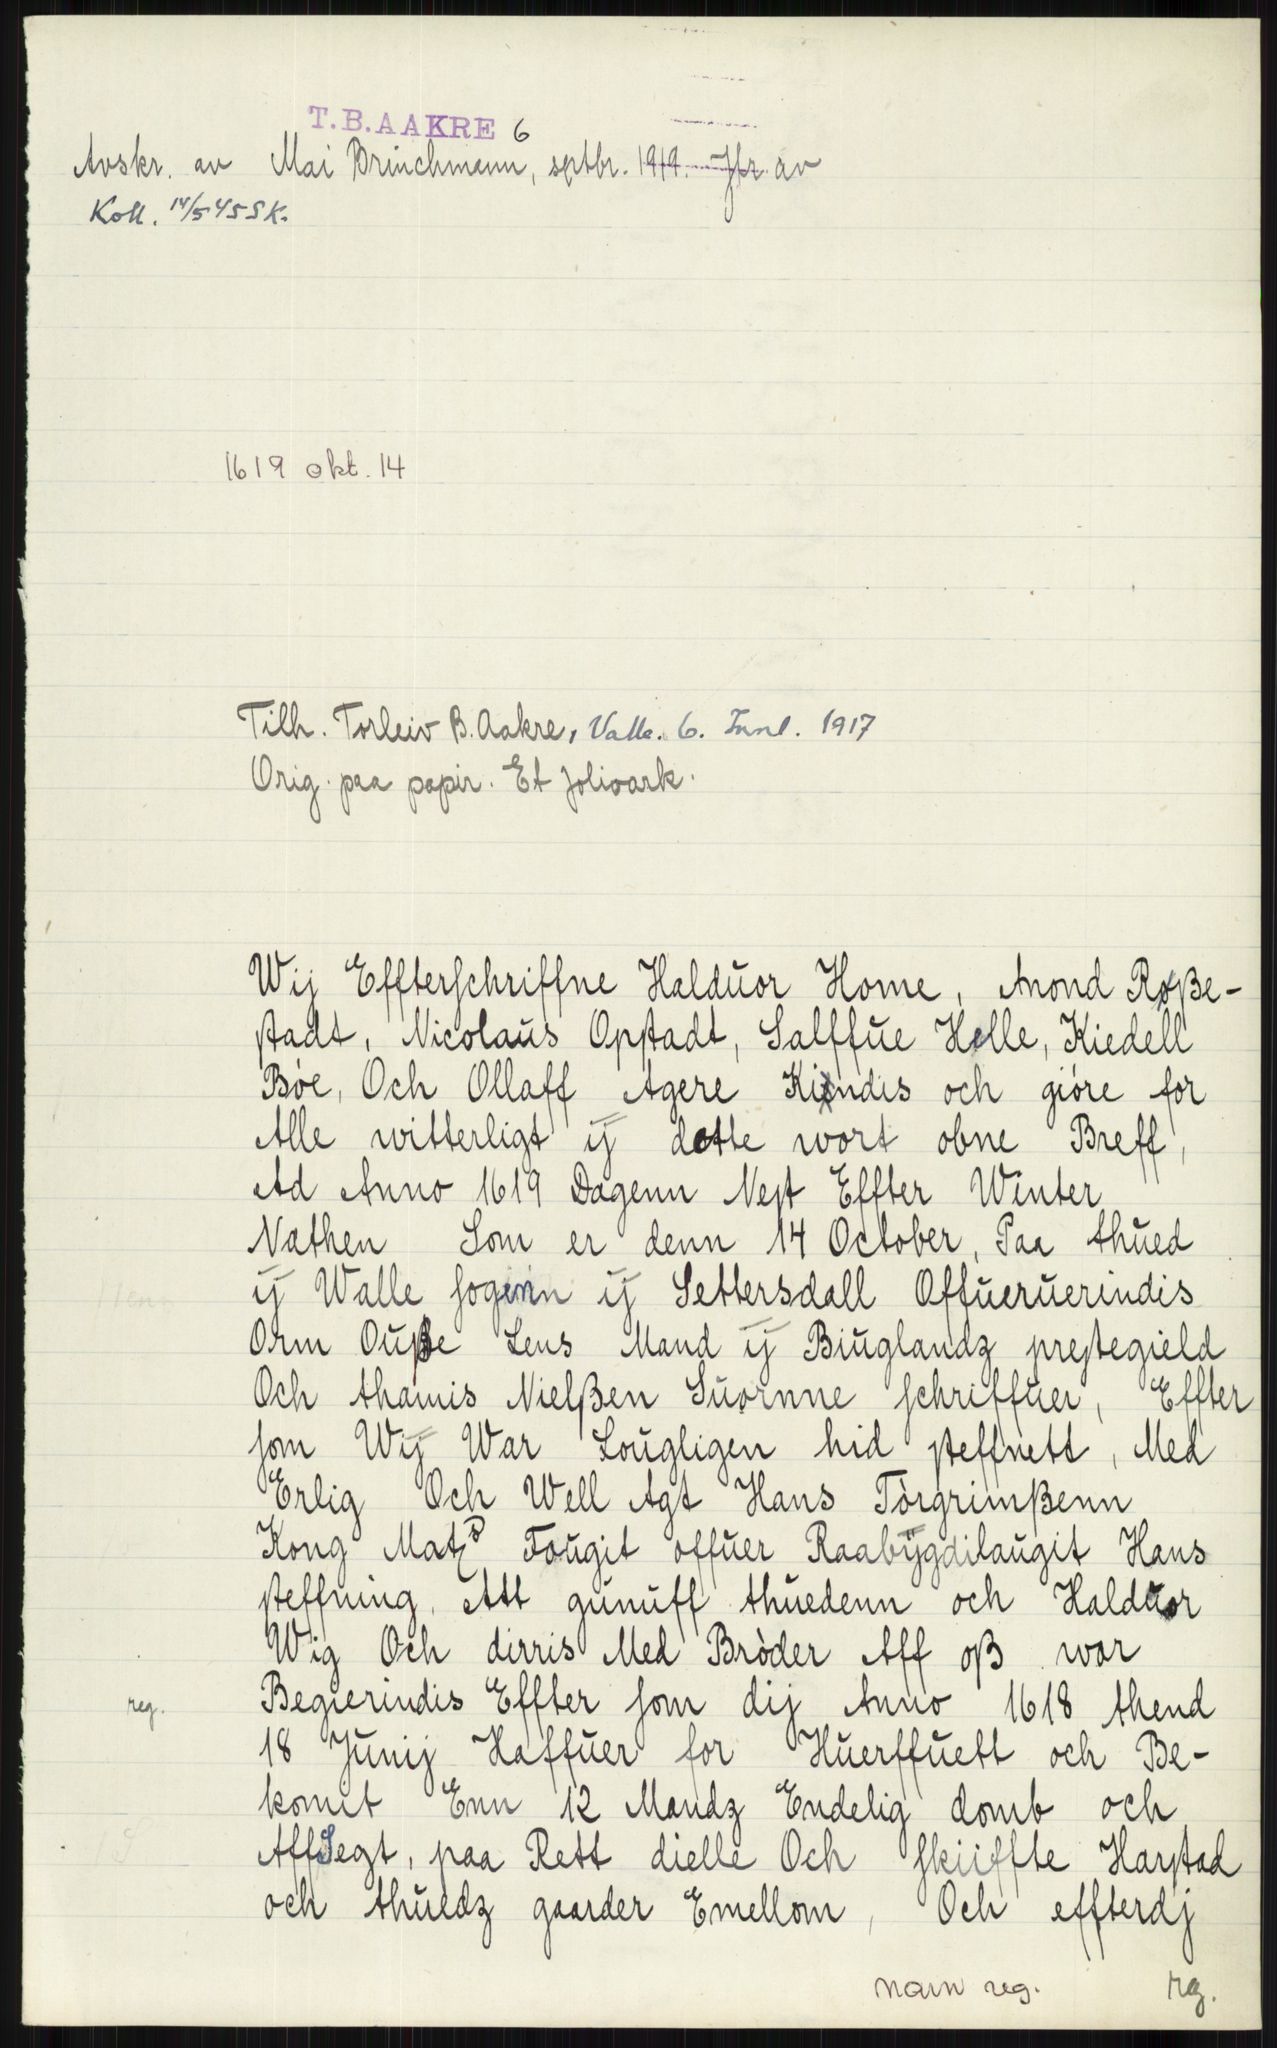 T.B.AAKRE 6
Avskr. av Mai Brinchmann, sptbr. 1919. Jfr. av
Koll. 14/5 45 SK.
1619 okt. 14
Tilh. Torleiv B. Aakre, Valle. 6. Innl. 1917
Orig. paa papir. Et folioark.
Wij Effterschriffne Halduor Home, Anond Røße-
stadt, Nicolaus Opstadt, Salffue Helle, Kiedell
Bóe, Och Ollaff Agere Kiendis och gióre for
Alle witterligt ij dette wort obne Breff,
Ad Anno 1619 Dagenn Nest Effter Winter
Nathen Som er denn 14 October, Paa thued
ij Walle sogenn ij Settersdall Offueruerindis
Orm Ouße Lens Mand ij Biuglandz prestegield
Och thamis Nielßen Suornne schriffuer, Effter
som Wij War Lougligen hid steffnett, Med
Erlig Och Well Agt Hans Tòrgrimßenn
Kong Matz Fougit offuer Raabygdilaugit Hans
steffning, Att gunuff thuedenn och Halduor
Wig Och dirris Med Bròder Aff oß war
reg. Begierindis Effter som dij Anno 1618 thend
18 Junij Haffuer for Huerffuett och Be-
komit Enn 12 Mandz Endelig domb och
Affsegt, paa Rett dielle Och skiiffte Harstad
och thuedz gaarder Emellom, Och effterdj
navn reg. rg.